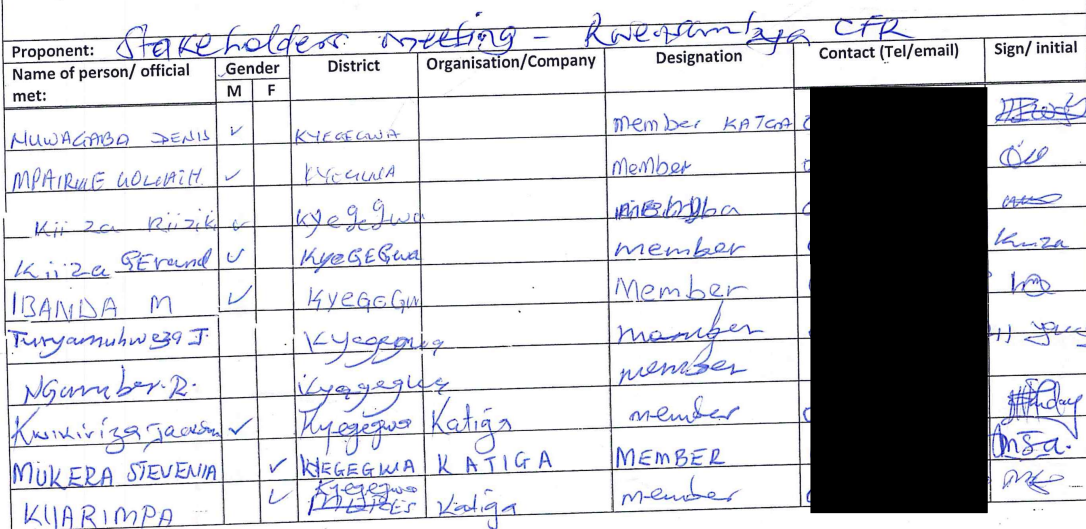 Proponent: Stakeholders meeting - Rwensambya CFR
Name of person/ official met: Gender M F District Organisation/Company Designation Contact (Tel/email) Sign/ initial
MUWAGABA DENIS ✓ KYEGEGWA Member KATGA
MPAIRWE GOLIATH ✓ KYEGWA Member
Kiiza Riizik ✓ Kyegegwa
Kiiza GErand ✓ KyeGEGwa member Kiiza
IBANDA M ✓ KYEGGGW Member
Turyamuhweza J. Kyegegwa member
NGamber. R. Kyegegwa member
Kwikiriza Jackson ✓ Kyegegwa Katiga member
MUKERA STEVENIA ✓ KYEGEGWA KATIGA MEMBER
KIJARIMPA ✓ Kyegegwa Katiga member